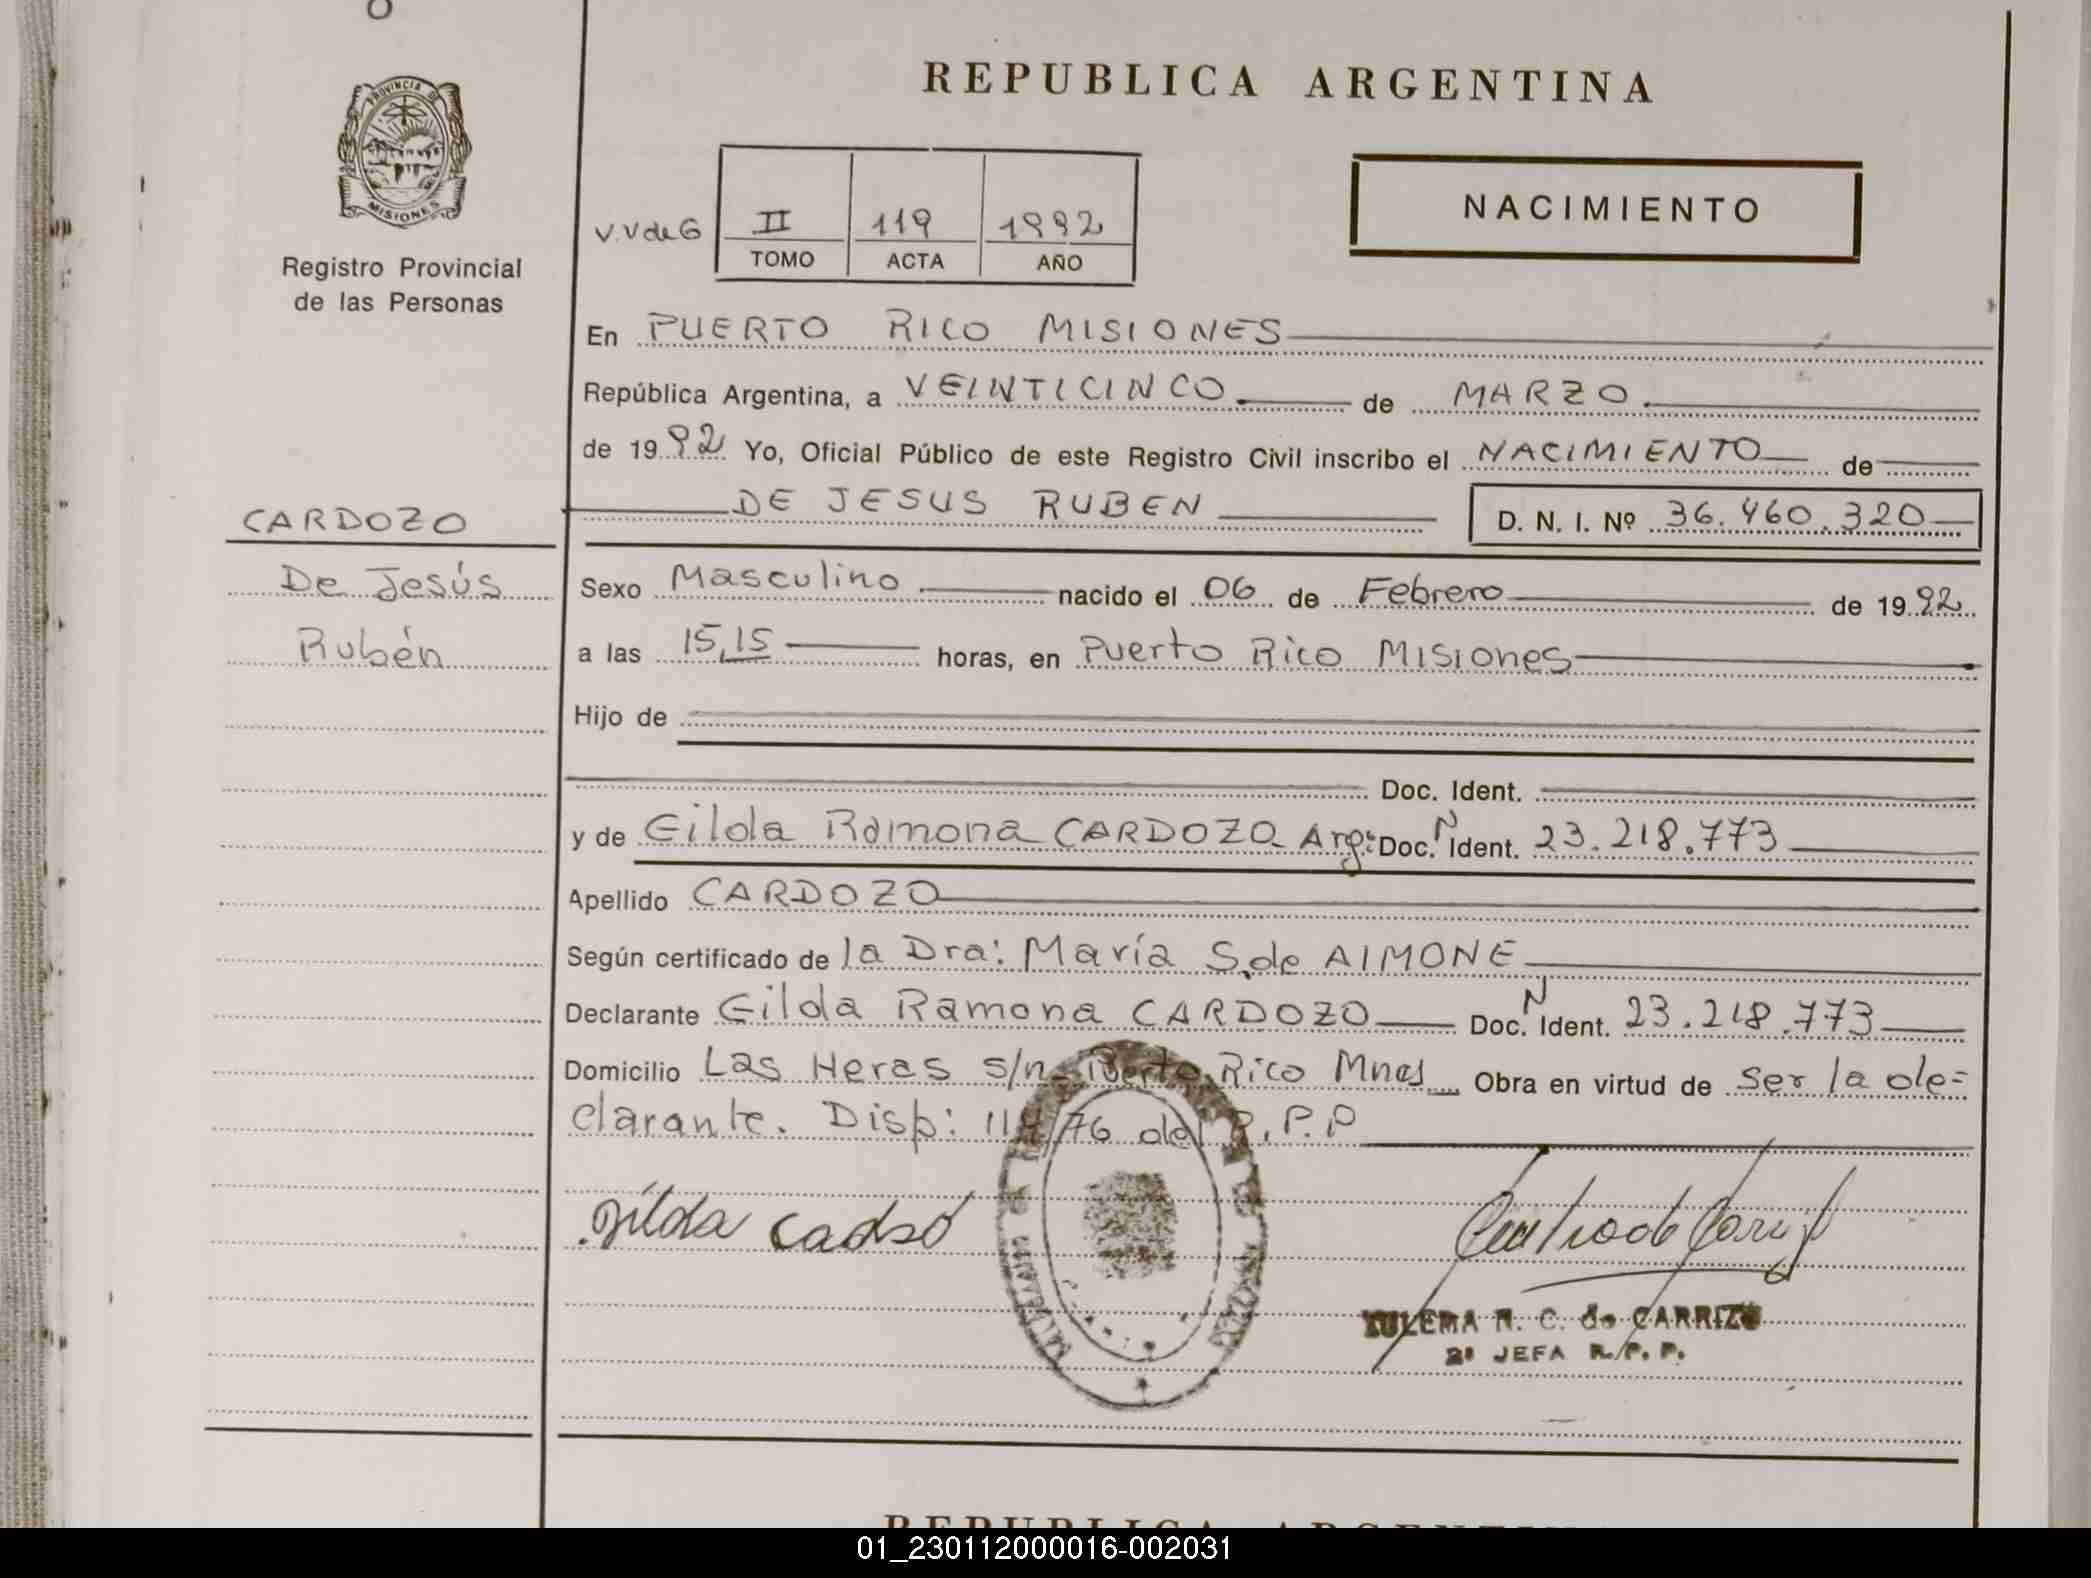 PROVINCIA DE
MISIONES
Registro Provincial
de las Personas
CARDOZO
De Jesús
Rubén
REPUBLICA ARGENTINA
V.V de G
II 119 1992
TOMO ACTA AÑO
NACIMIENTO
En PUERTO RICO MISIONES
República Argentina, a VEINTICINCO de MARZO.
de 1992 Yo, Oficial Público de este Registro Civil inscribo el NACIMIENTO de
DE JESUS RUBEN D. N. I. Nº 36.460.320
Sexo Masculino nacido el 06 de Febrero de 1992
a las 15,15 horas, en Puerto Rico Misiones
Hijo de
Doc. Ident.
y de Gilda Ramona CARDOZO Arg: Doc. N Ident. 23.218.773
Apellido CARDOZO
Según certificado de la Dra: María S. de AIMONE
Declarante Gilda Ramona CARDOZO Doc. N Ident. 23.218.773
Domicilio Las Heras s/n Puerto Rico Mnes Obra en virtud de ser la de=
clarante. Disp: 118/76 del R.P.P
Gilda
ZULEMA R. C. de CARRIZO
2ª JEFA R. P. P.
REPUBLICA ARGENTINA
01_230112000016-002031